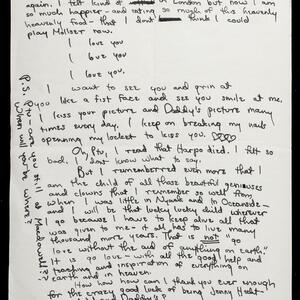 again. I felt kind of in London but now I am
so much happier - and eating so much of this heavenly
heavenly food - that I don't think I could
play Moliser now.
I love you
I love you
love you.
I want to see you and grin at
you like a fist face and see you smile at me.
I kiss your picture and Daddy's picture many
times every day, I keep on breaking my nails
opening my locket to kiss you.
Oh, I read that Harpo died. I felt so
bad. I don't know what to say.
But I remembered even more that I
am the child of all those beautiful geniuses
and clowns that I remember so well from
when I was little in Nyack and in Oceanside -
and I will be that lucky lucky child wherever
I go because I have to keep alive all that
was given to me - it all has to live many
thousand more years. That is not
love without the aid of anything on earth!
It is go love - with all the good help and
teaching and inspiration of everything on
earth and in heaven.
How how how can I thank you ever enough
for the crazy good luck of being Jenny Hecht,
and Daddy's?
P.S. Are you still at Macdowns??
When will you be where?